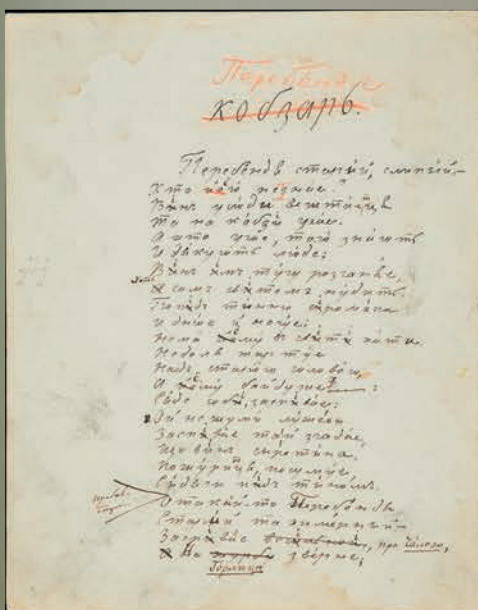 Перебендя
кобзарь.
Перебендя старий, слипий, —
Хто его незнае?
Винъ усюды вештаетця
Та на кобзи грае.
А хто грае, того знають
И дякують люде:
Винъ имъ тугу розганяе,
Хоть самъ свитомъ нудить.
Попидъ тинню сиромаха
И днюе й ночуе;
Нема ёму въ свити хаты.
Недоля жартуе
Надъ старою головою,
А ёму байдуже:
Сяде соби, заспивае:
Ой нешуми луже
Заспивае тай згадае,
Що винъ сиротина.
Пожурится, посумуе
Сидячи пидъ тиномъ.
Отакий-то Перебендя
Старий та химерний —
Заспивае про Чалого,
На зверне;
Горлицю